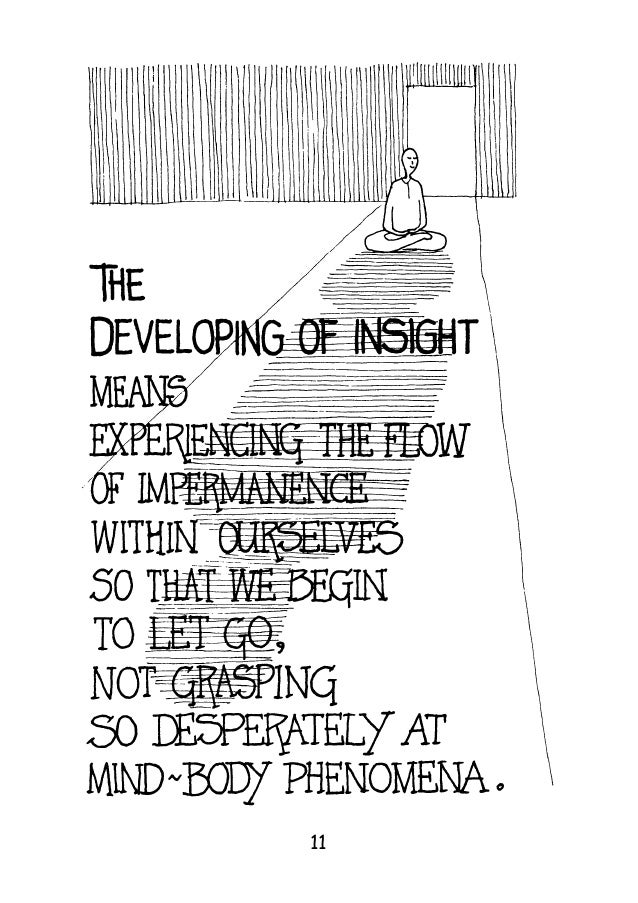 THE
DEVELOPING OF INSIGHT
MEANS
EXPERIENCING THE FLOW
OF IMPERMANENCE
WITHIN OURSELVES
SO THAT WE BEGIN
TO LET GO,
NOT GRASPING
SO DESPERATELY AT
MIND~BODY PHENOMENA.
11